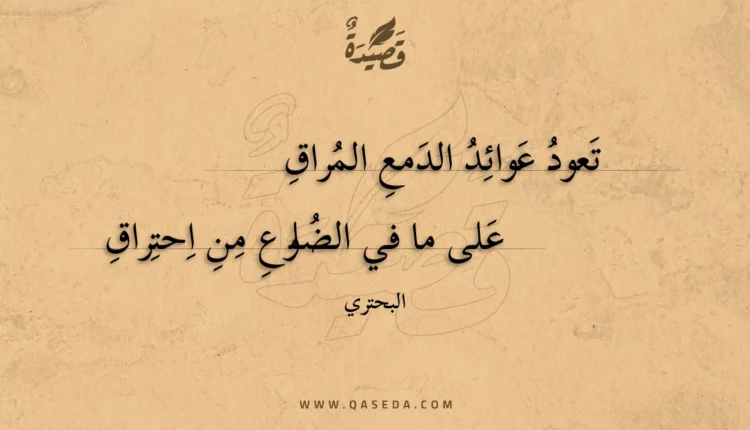 قَصِيْدَةٌ
تَعودُ عَوائِدُ الدَمعِ المُراقِ
عَلى ما في الضُلوعِ مِنِ اِحتِراقِ
البحتري
WWW.QASEDA.COM